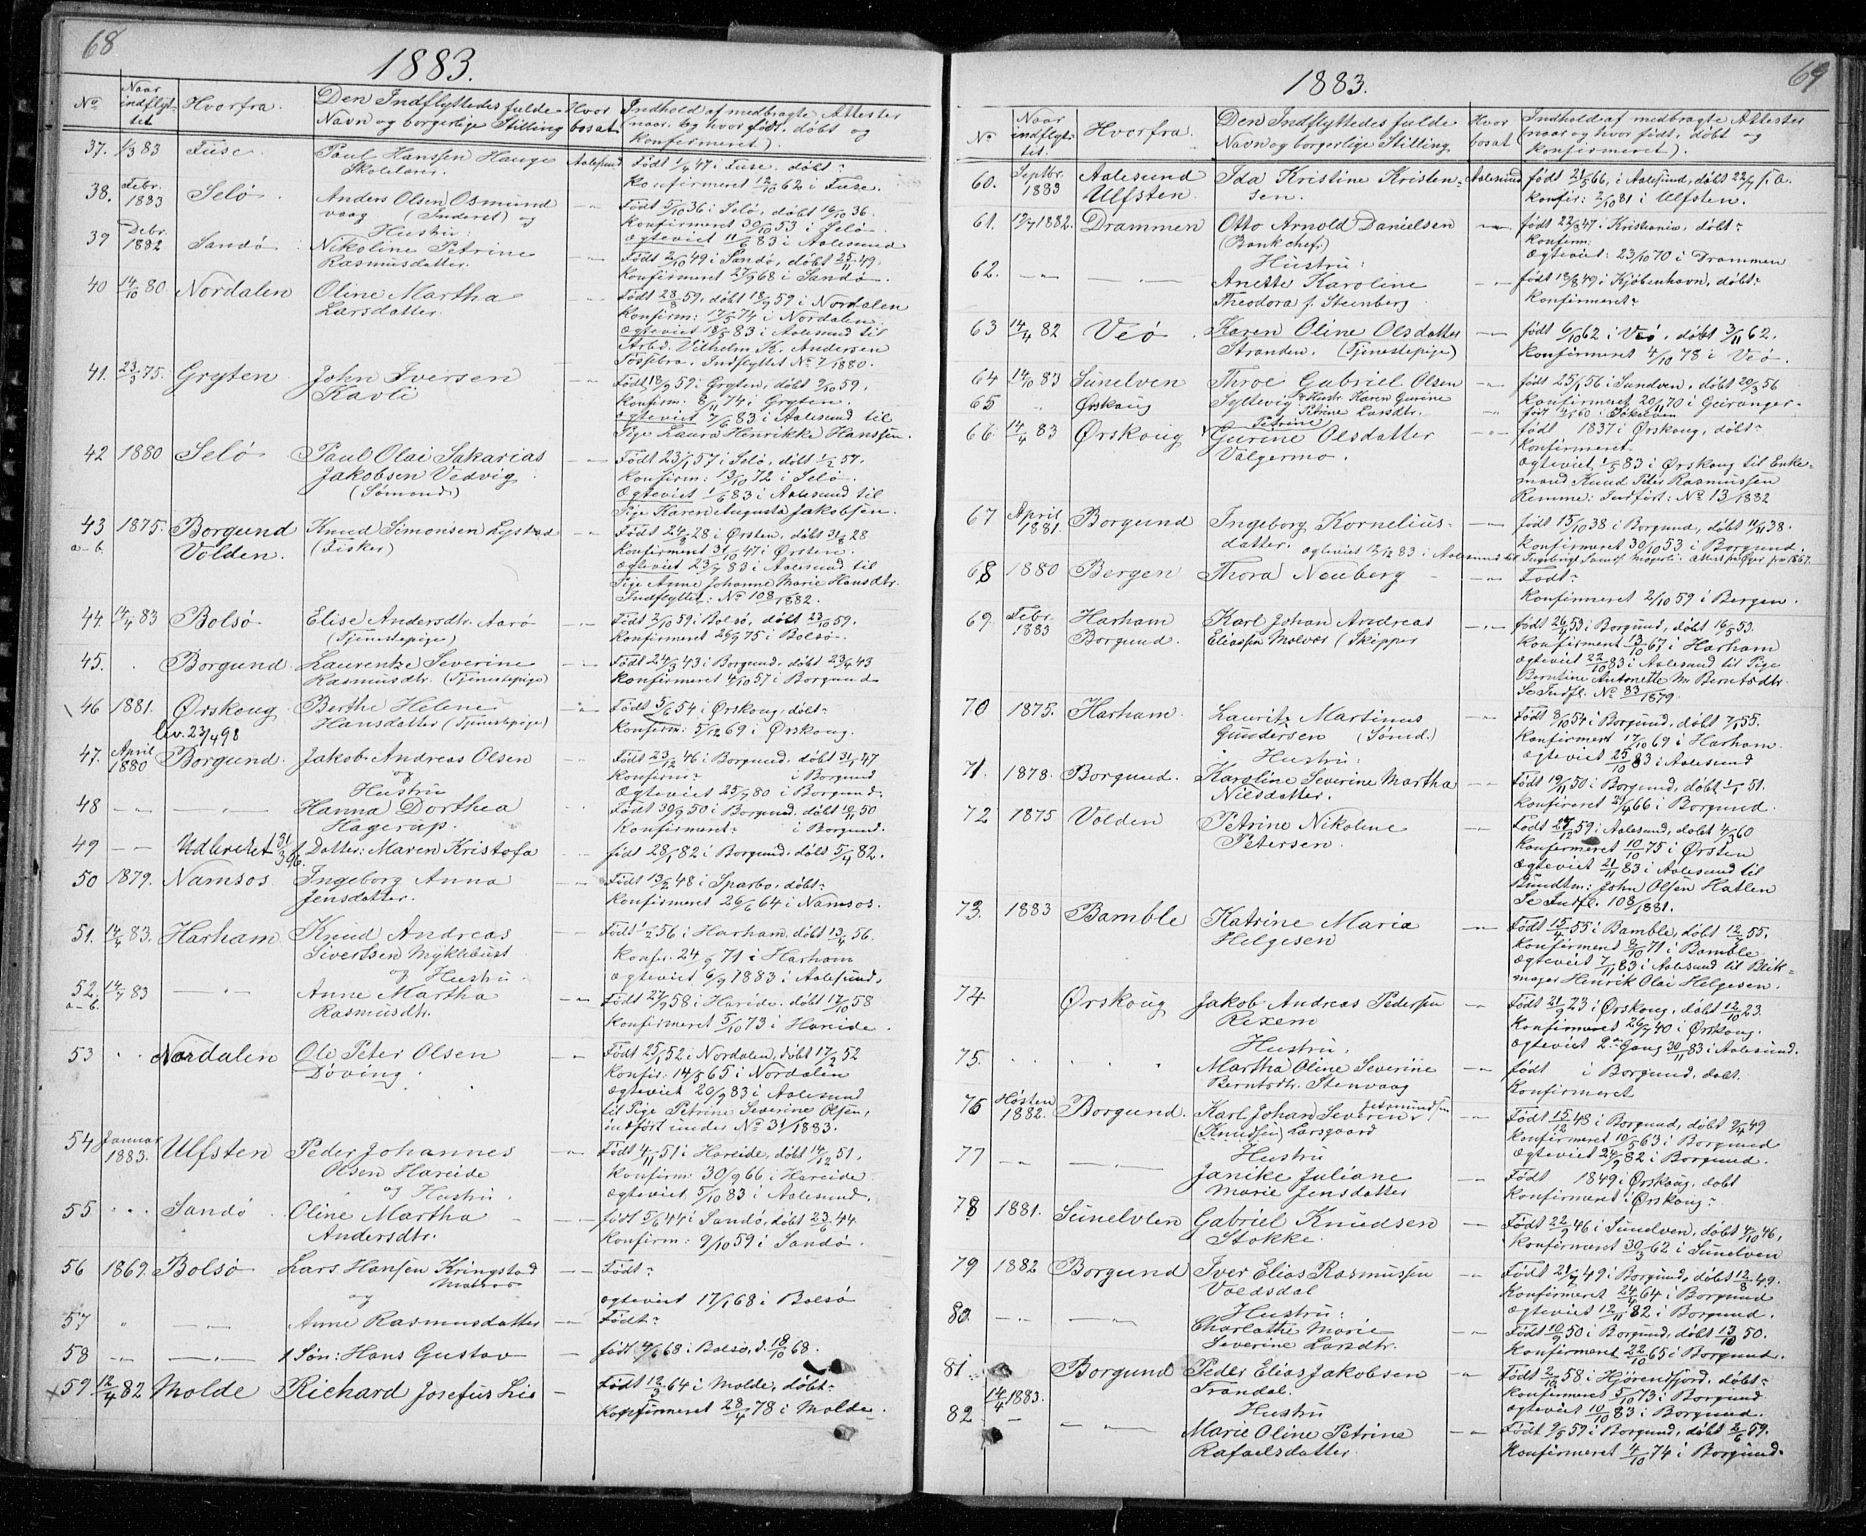 68
1883.
No
Naar indflyt-tet
Hvorfra.
Den Indflyttedes fulde Navn og borgerlige Stilling
Hvor bosat
Indhold af medbragte Attester (naar og hvor født, døbt og konfirmeret).
37. 1/3 83 Fuse Paul Hanssen Hauge Aalesund Født 1/4 47 i Fuse, døbt-
Skolelær. Konfirmeret 12/10 62 i Fuse.
38. Febr. 1883 Selø Anders Olsen Osmund Født 5/10 36 i Selø, døbt 16/10 36.
vaag (Inderst) og Konfirmeret 30/10 53 i Selø.
Hustru: Ægteviet 11/6 83 i Aalesund
39 Debr. 1882 Sandø Nikoline Petrine Født 2/10 49 i Sandø, døbt 25/11 49.
Rasmusdatter. Konfirmeret 27/9 68 i Sandø.
40 14/10 80 Nordalen Oline Martha Født 28/8 59, døbt 18/9 59 i Nordalen
Larsdatter. Konfirm: 17/5 74 i Nordalen.
Ægteviet 18/5 83 i Aalesund til
Arbd. Vilhelm K. Andersen
Indflyttet No 7/1880.
41. 23/3 75. Gryten John Iversen Født 18/9 59 i Gryten, døbt 9/10 59.
Kavli Konfirm. 8/11 74 i Gryten.
Ægteviet 7/6 83 i Aalesund til
Pige Laura Henrikke Hansen.
42 1880 Selø Paul Olai Sakarias Født 23/1 57 i Selø, døbt 1/2 57.
Jakobsen Vedvig. Konfirm: 13/10 72 i Selø.
(Sømand) Ægteviet 1/6 83 i Aalesund til
Pige Karen Augusta Jakobsen.
43 a-b. 1875. Borgund Knud Simonsen Født 24/8 28 i Ørsten, døbt 31/8 28
Volden. (Fisker) Konfirmeret 31/10 47 i Ørsten.
Ægteviet 23/7 83 i Aalesund til
Pige Anne Johanne Marie Hansdtr.
Indflyttet: No 108/1882.
44. 14/4 83 Bolsø Elise Andersdtr. Aarø Født 2/10 59 i Bolsø, døbt 23/10 59.
(Tjenestepige) Konfirmeret 26/9 75 i Bolsø.
45. Borgund Laurentze Severine Født 24/3 43 i Borgund, døbt 23/4 43
Rasmusdtr. (Tjenestepige) Konfirmeret 4/10 57 i Borgund
46 1881. Ørskoug Berthe Helene Født 5/6 54 i Ørskoug, døbt-
lev. 23/4 98 Hansdatter (Tjenestepige) Konfirm: 5/12 69 i Ørskoug.
47. April 1880 Borgund. Jakob Andreas Olsen Født 23/12 46 i Borgund, døbt 31/1 47
og Konfirm- i Borgund
Hustru Ægteviet 25/7 80 i Borgund.
48 Hanna Dorthea Født 30/9 50 i Borgund, døbt 10/11 50
Hagerup. Konfirmeret- i Borgund.
49 Udleveret 31/3 96. 1 Datter: Maren Kristofa født 28/1 82 i Borgund, døbt 5/4 82.
50 1879. Namsos Ingeborg Anna Født 13/2 48 i Sparbo, døbt-
Jensdatter. Konfirmeret 26/6 64 i Namsos.
51. 14/4 83. Harham Knud Andreas Født 1/2 56 i Harham, døbt 13/4 56.
Sivertsen Myklebust Konfir. 24/9 71 i Harham
og Hustru Ægteviet 6/9 1883 i Aalesund.
52. a-b. 14/7 83 Anne Martha Født 27/9 58 i Hareide, døbt 17/10 58
Rasmusdtr. Konfirmeret 5/10 73 i Hareide.
53 Nordalen Ole Peter Olsen Født 25/1 52 i Nordalen, døbt 17/2 52
Døving. Konfir: 14/5 65 i Nordalen
Ægteviet 20/9 83 i Aalesund
til Pige Petrine Severine Olsen,
indført under No 31/1883.
54 Januar 1883. Ulfsten Peder Johannes Født 4/11 51 i Hareide, døbt 14/12 51.
Olsen Hareide Konfirm: 30/9 66 i Hareide
og Hustru. Ægteviet 5/10 83 i Aalesund.
55 Sandø Oline Martha født 5/6 44 i Sandø, døbt 23/6 44.
Andersdtr. Konfirm: 9/10 59 i Sandø.
56 1869. Bolsø Lars Hansen Kringstad Født-
og Ægteviet 17/1 68 i Bolsø
57 Anne Rasmusdatter Født-
58 1 Søn: Hans Gustav født 9/6 68 i Bolsø, d. 18/10 68.
59 12/4 82. Molde Richard Josefus Lie Født 12/3 64 i Molde, døbt-
Konfirmeret 28/4 78 i Molde.
69
1883.
No
Naar indflyt-tet.
Hvorfra.
Den Indflyttedes fulde Navn og borgerlige Stilling
Hvor bosat
Indhold af medbragte Attester (naar og hvor født, døbt og konfirmeret).
60. Septbr. 1883 Aalesund Ida Kristine Kristen- Aalesund født 21/5 66, i Aalesund, døbt 22/7 s. a.
Ulfsten sen. Konfir: 2/10 81 i Ulfsten.
61. 12/7 1882. Drammen Otto Arnold Danielsen født 22/8 47. Kristiania, døbt-
(Bankchef) Konfirm:
Hustru: Ægteviet: 23/10 70 i Drammen
62. Anette Karoline født 18/8 49 i Kjøbenhavn, døbt-
Theodora f. Steenberg. Konfirmeret-
63 14/4 82 Veø Karen Oline Olsdatter født 6/10 62 i Veø, døbt 3/11 62.
Stranden. (Tjenestepige) Konfirmeret 4/10 78 i Veø.
64 14/10 83 Sunelven Throe Gabriel Olsen født 25/1 56 i Sundven, døbt 20/3 56
Konfirmeret 20/11 70 i Geiranger.
65 Ørskoug Syltevig Hustr. Karen Gurine Petrine Larsdtr.
66. 14/4 83 Ørskoug Petrine Gurine Olsdatter født 1837 i Ørskoug, døbt-
Valgermo. Konfirmeret-
Ægteviet 1/5 83 i Ørskoug til Enke-
mand Knud Peter Rasmussen
Remme: Indført: No 13/1882
67 April 1881. Borgund Ingeborg Kornelius- født 15/10 38 i Borgund, døbt 11/11 38.
datter. Konfirmeret 30/10 53 i Borgund
ægteviet 12/12 83 i Aalesund til
68 1880 Bergen Thora Neuberg Født-
Konfirmeret 2/10 59 i Bergen.
69. Febr. 1883 Harham Karl Johan Andreas født 26/4 53 i Borgund, døbt 16/5 53.
Borgund. Eliassen Molvær (Skipper Konfirmeret 13/10 67 i Harham
Ægteviet 22/10 83 i Aalesund til Pige
Berntine Antonette M Berntsdtr.
Se Indfl. No 83/1879
70 1875. Harham. Lauritz Martinus Født 8/10 54 i Borgund, døbt 7/1 55.
Gundersen (Sømd.) Konfirmert 17/10 69 i Harham.
Hustru: Ægteviet 25/10 83 i Aalesund
71. 1878. Borgund. Karoline Severine Martha Født 19/11 50 i Borgund, døbt 1/1 51.
Nilsdatter. Konfireret 29/4 66 i Borgund.
72 1875 Volden Petrine Nikoline Født 17/12 59 i Aalesund, døbt 4/3 60
Petersen. Konfirmeret 10/10 75 i Ørsten
Ægteviet 21/11 83 i Aalesund til
Bundtm: John Olsen Hatlen
Se Indfl. 108/1881.
73. 1883 Bamble Katrine Marie Født 15/4 55 i Bamble, døbt 12/5 55.
Helgesen Konfirmend 8/10 71 i Bamble
Ægteviet 7/11 83 i Aalesund til Blik-
mager Henrik Olai Helgesen.
74 Ørskoug Jakob Andreas Pedersen Født 21/9 23 i Ørskoug, døbt 12/10 23.
Rexem Konfirmeret 26/7 40 i Ørskoug.
Hustru. Ægteviet 2. Gang 30/11 83 i Aalesund.
75. Martha Oline Severine født i Borgund, døbt.
Berntsdtr. Stenvaag Konfirmeret
76 Høsten 1882. Borgund. Karl Johan Severin Født 15/12 48 i Borgund, døbt 9/4 49
(Knudsen) Larsgaard Konfirmeret 10/5 63 i Borgund
Hustru Ægteviet 24/9 82 i Borgund.
77 Janike Juliane Født 1849 i Ørskoug, døbt
Marie Jensdatter Konfirmeret i Ørskoug-
78 1881. Sunelvlen Gabriel Knudsen Født 22/9 46 i Sunelven, døbt 4/10 46,
Stokke. Konfirmeret 30/3 62 i Sunelven
79 1882 Borgund Iver Elias Rasmussen Født 21/7 49 i Borgund, døbt 12/8 49.
Voldsdal Konfirmeret 24/4 64 i Borgund
Hustru: Ægteviet 12/11 82 i Borgund.
80. Charlothe Marie Født 10/9 50 i Borgund, døbt 13/10 50.
Severine Larsdtr. Konfirmeret 22/10 65 i Borgund.
81. 14/4 1883. Borgund Peder Elias Jakobsen Født 2/10 58 i Hjørendfjord, døbt-
Trandal. Konfirmeret 5/10 73 i Borgund
Hustru Ægteviet 10/10 83 i Borgund.
82 Marie Oline Petrine Født 9/5 59 i Borgund, døbt 2/6 59.
Rafaelsdatter. Konfirmeret 4/10 74 i Borgund.